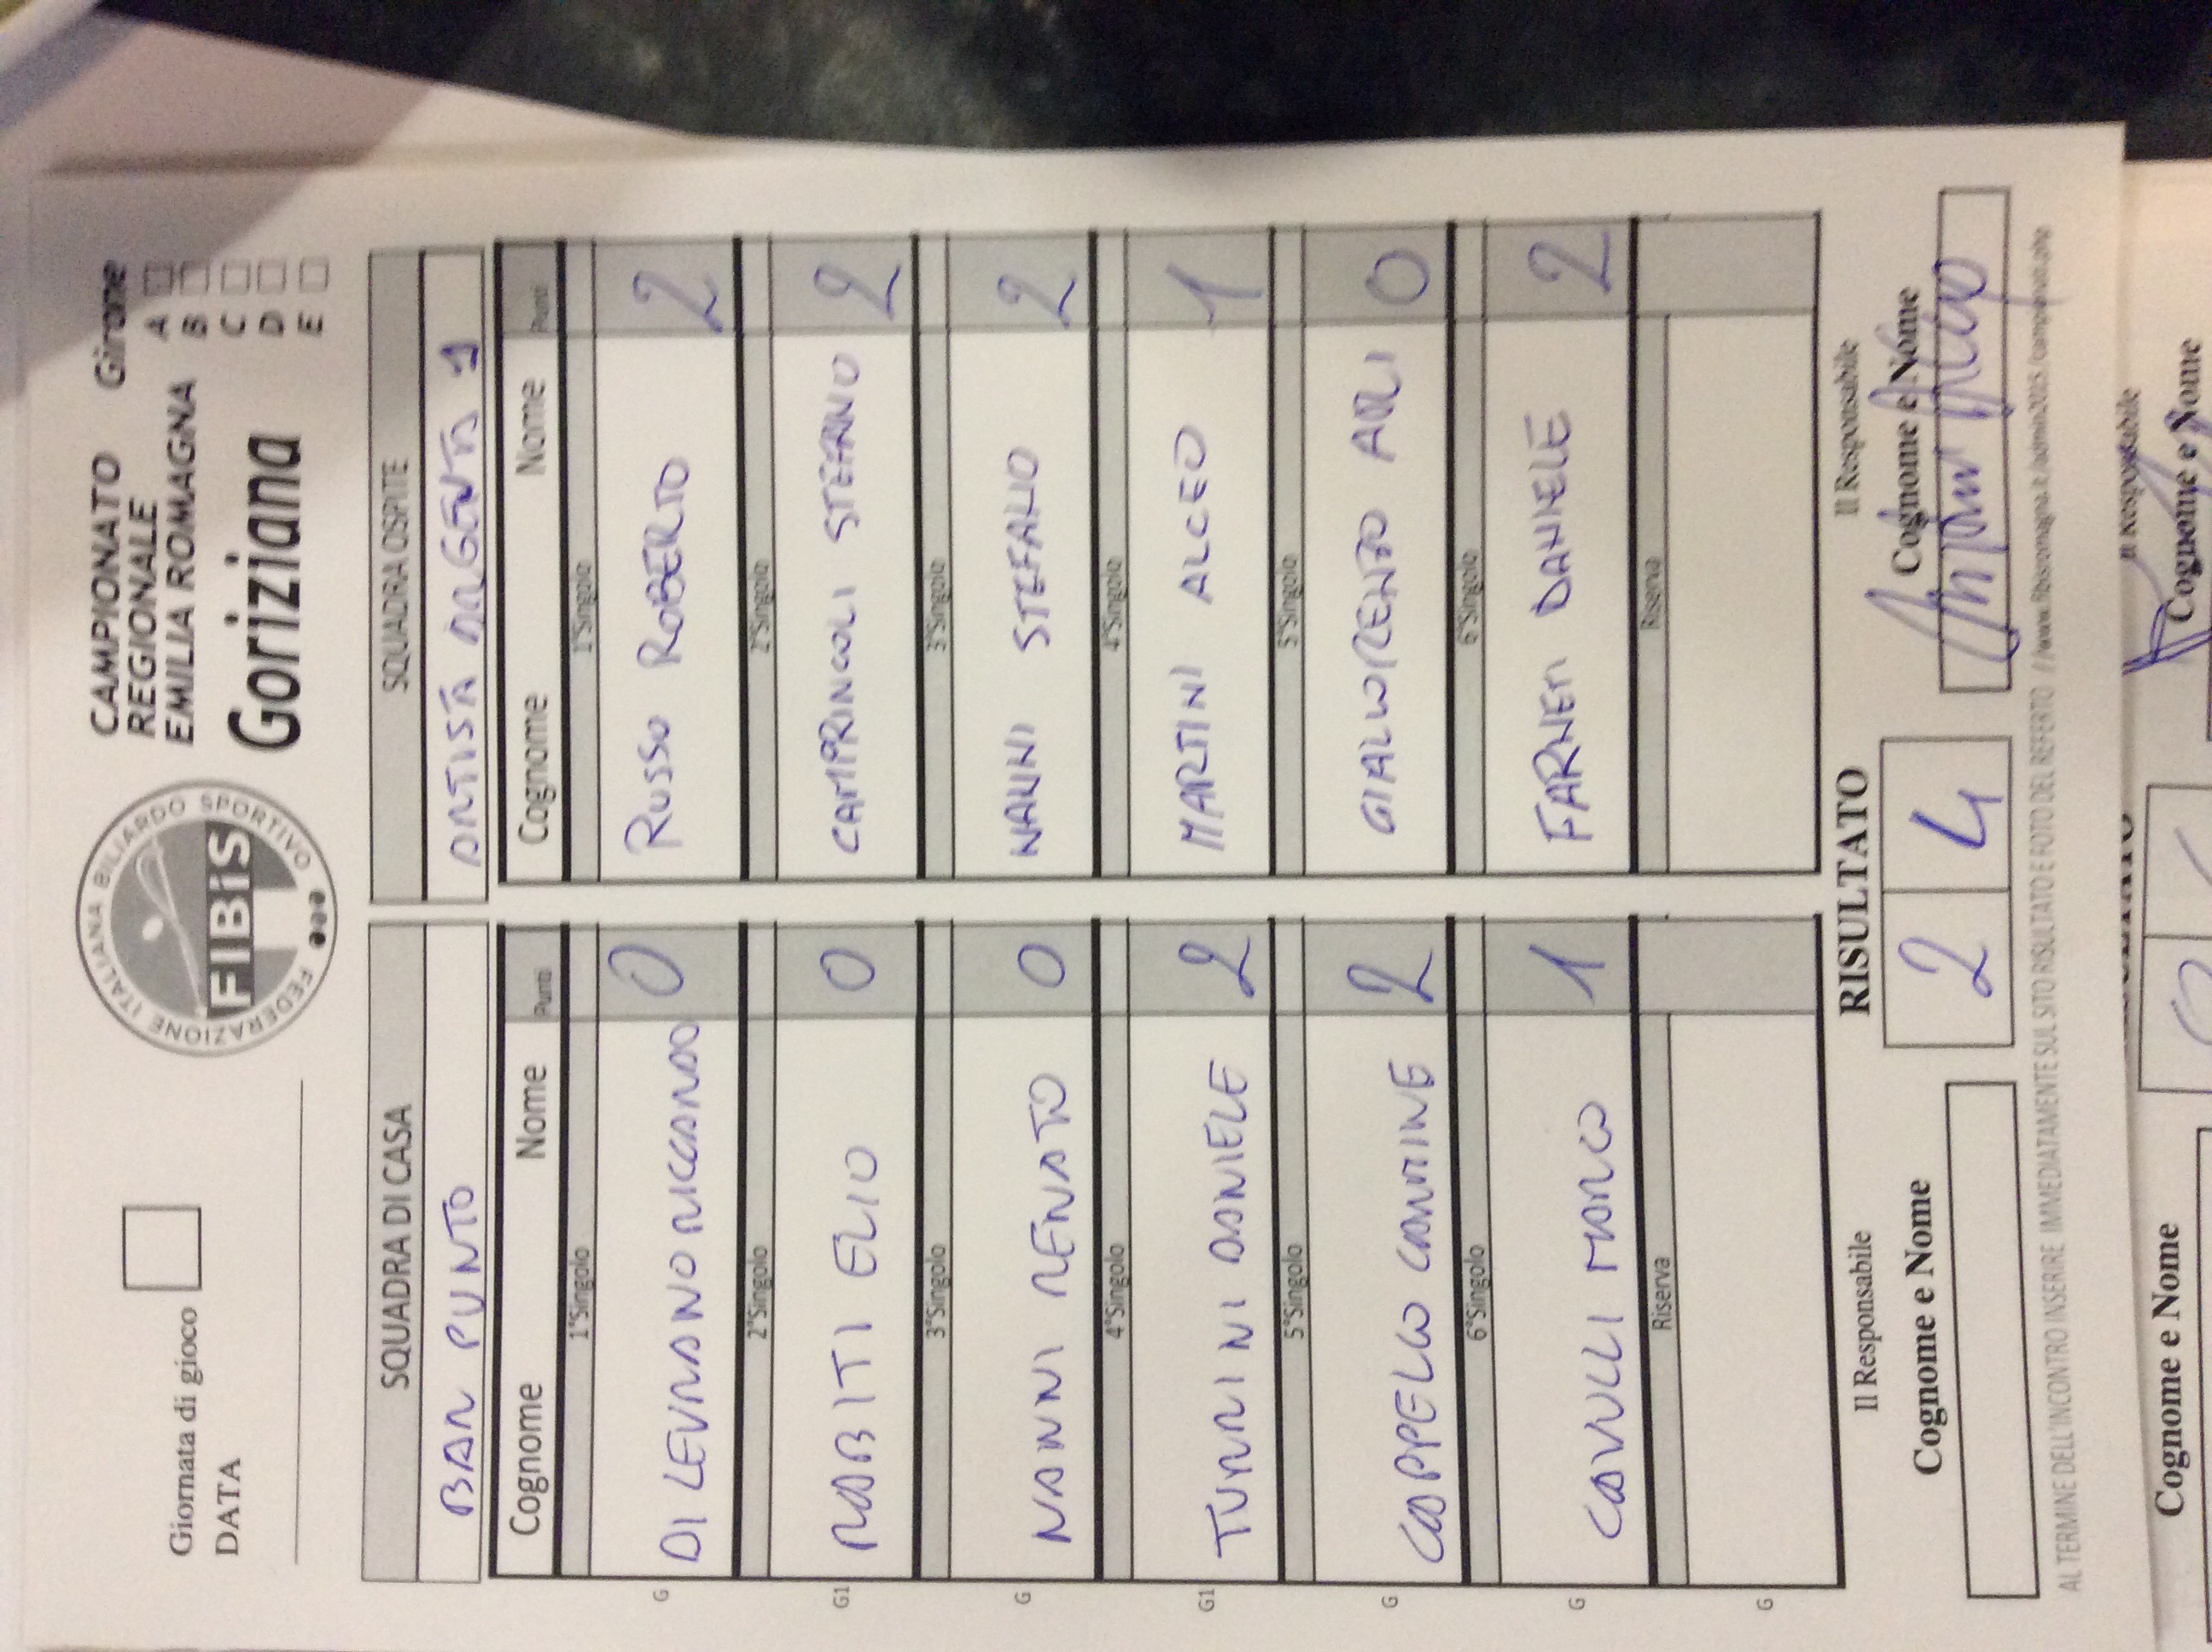 Giornata di gioco
DATA
FEDERAZIONE ITALIANA BILIARDO SPORTIVO
FIBiS
CAMPIONATO Girone
REGIONALE A
EMILIA ROMAGNA B
C
Goriziana D
E
SQUADRA DI CASA SQUADRA OSPITE
BAR PUNTO ARTISTA ARGENTA 1
Cognome Nome Punti Cognome Nome Punti
1°Singolo 1°Singolo
G DI LEVRANO RICCARDO 0 RUSSO ROBERTO 2
2°Singolo 2°Singolo
G1 RABITI ELIO 0 CAMPRINCOLI STEFANO 2
3°Singolo 3°Singolo
G NANNI RENATO 0 NANNI STEFANO 2
4°Singolo 4°Singolo
G1 TURRINI DANIELE 2 MARTINI ALCEO 1
5°Singolo 5°Singolo
G CAPPELLO CARMINE 2 GIALLORENZO ARLI 0
6°Singolo 6°Singolo
G CAVULLI MARCO 1 FARNETI DANIELE 2
Riserva Riserva
G
Il Responsabile RISULTATO Il Responsabile
Cognome e Nome 2 4 Cognome e Nome
AL TERMINE DELL'INCONTRO INSERIRE IMMEDIATAMENTE SUL SITO RISULTATO E FOTO DEL REFERTO
Il Responsabile
Cognome e Nome Cognome e Nome